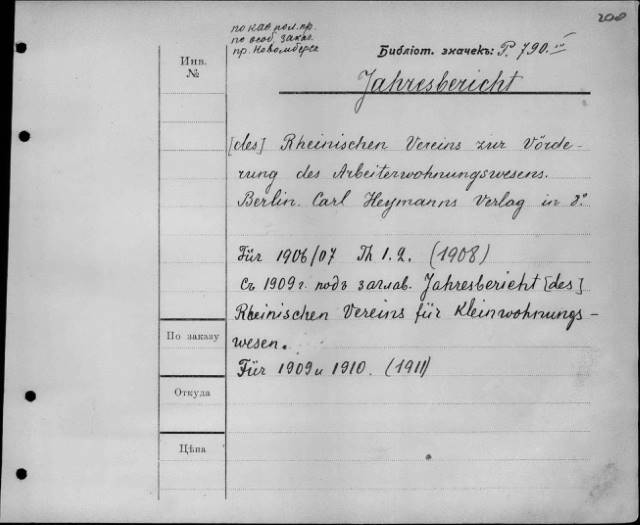 200
по каб. пол. пр.
по особ. заказ
пр. Новомберге
Библіот. значекъ: P. 790.
Инв.
№
Jahresbericht
[des] Rheinischen Vereins zur Vörde-
rung des Arbeiterwohnungswesens.
Berlin. Carl Heymanns Verlag in 8°
Für 1906/07 Th 1.2. (1908)
Съ 1909 г. подъ заглав. Jahresbericht [des]
Rheinischen Vereins für Kleinwohnungs-
wesen.
По заказу
Für 1909 и 1910. (1911)
Откуда
Цѣна